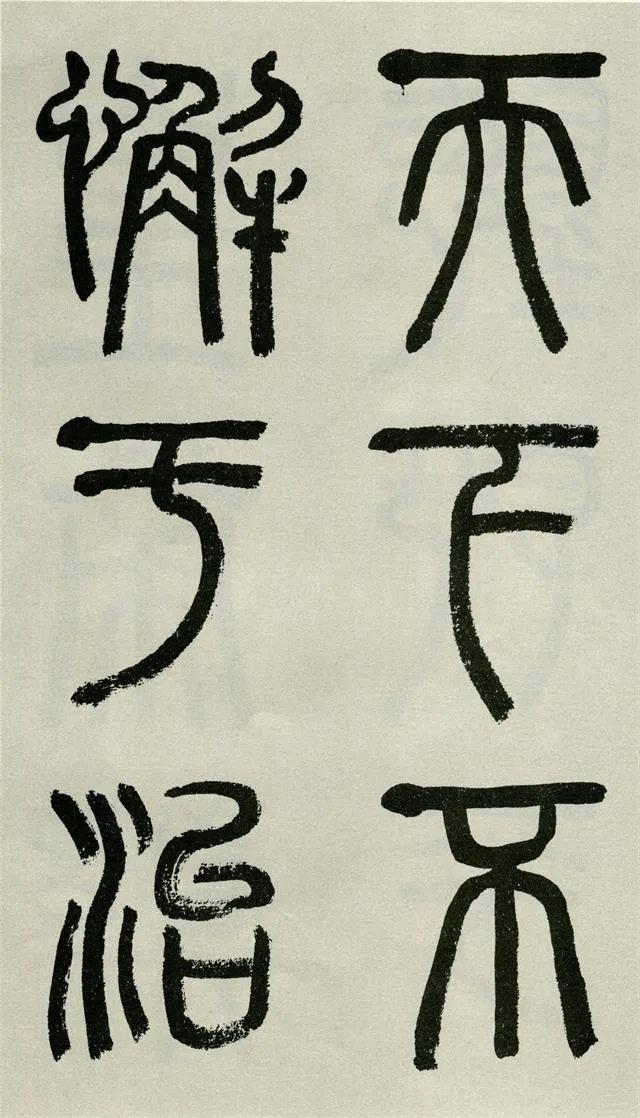 天下不
懈于治